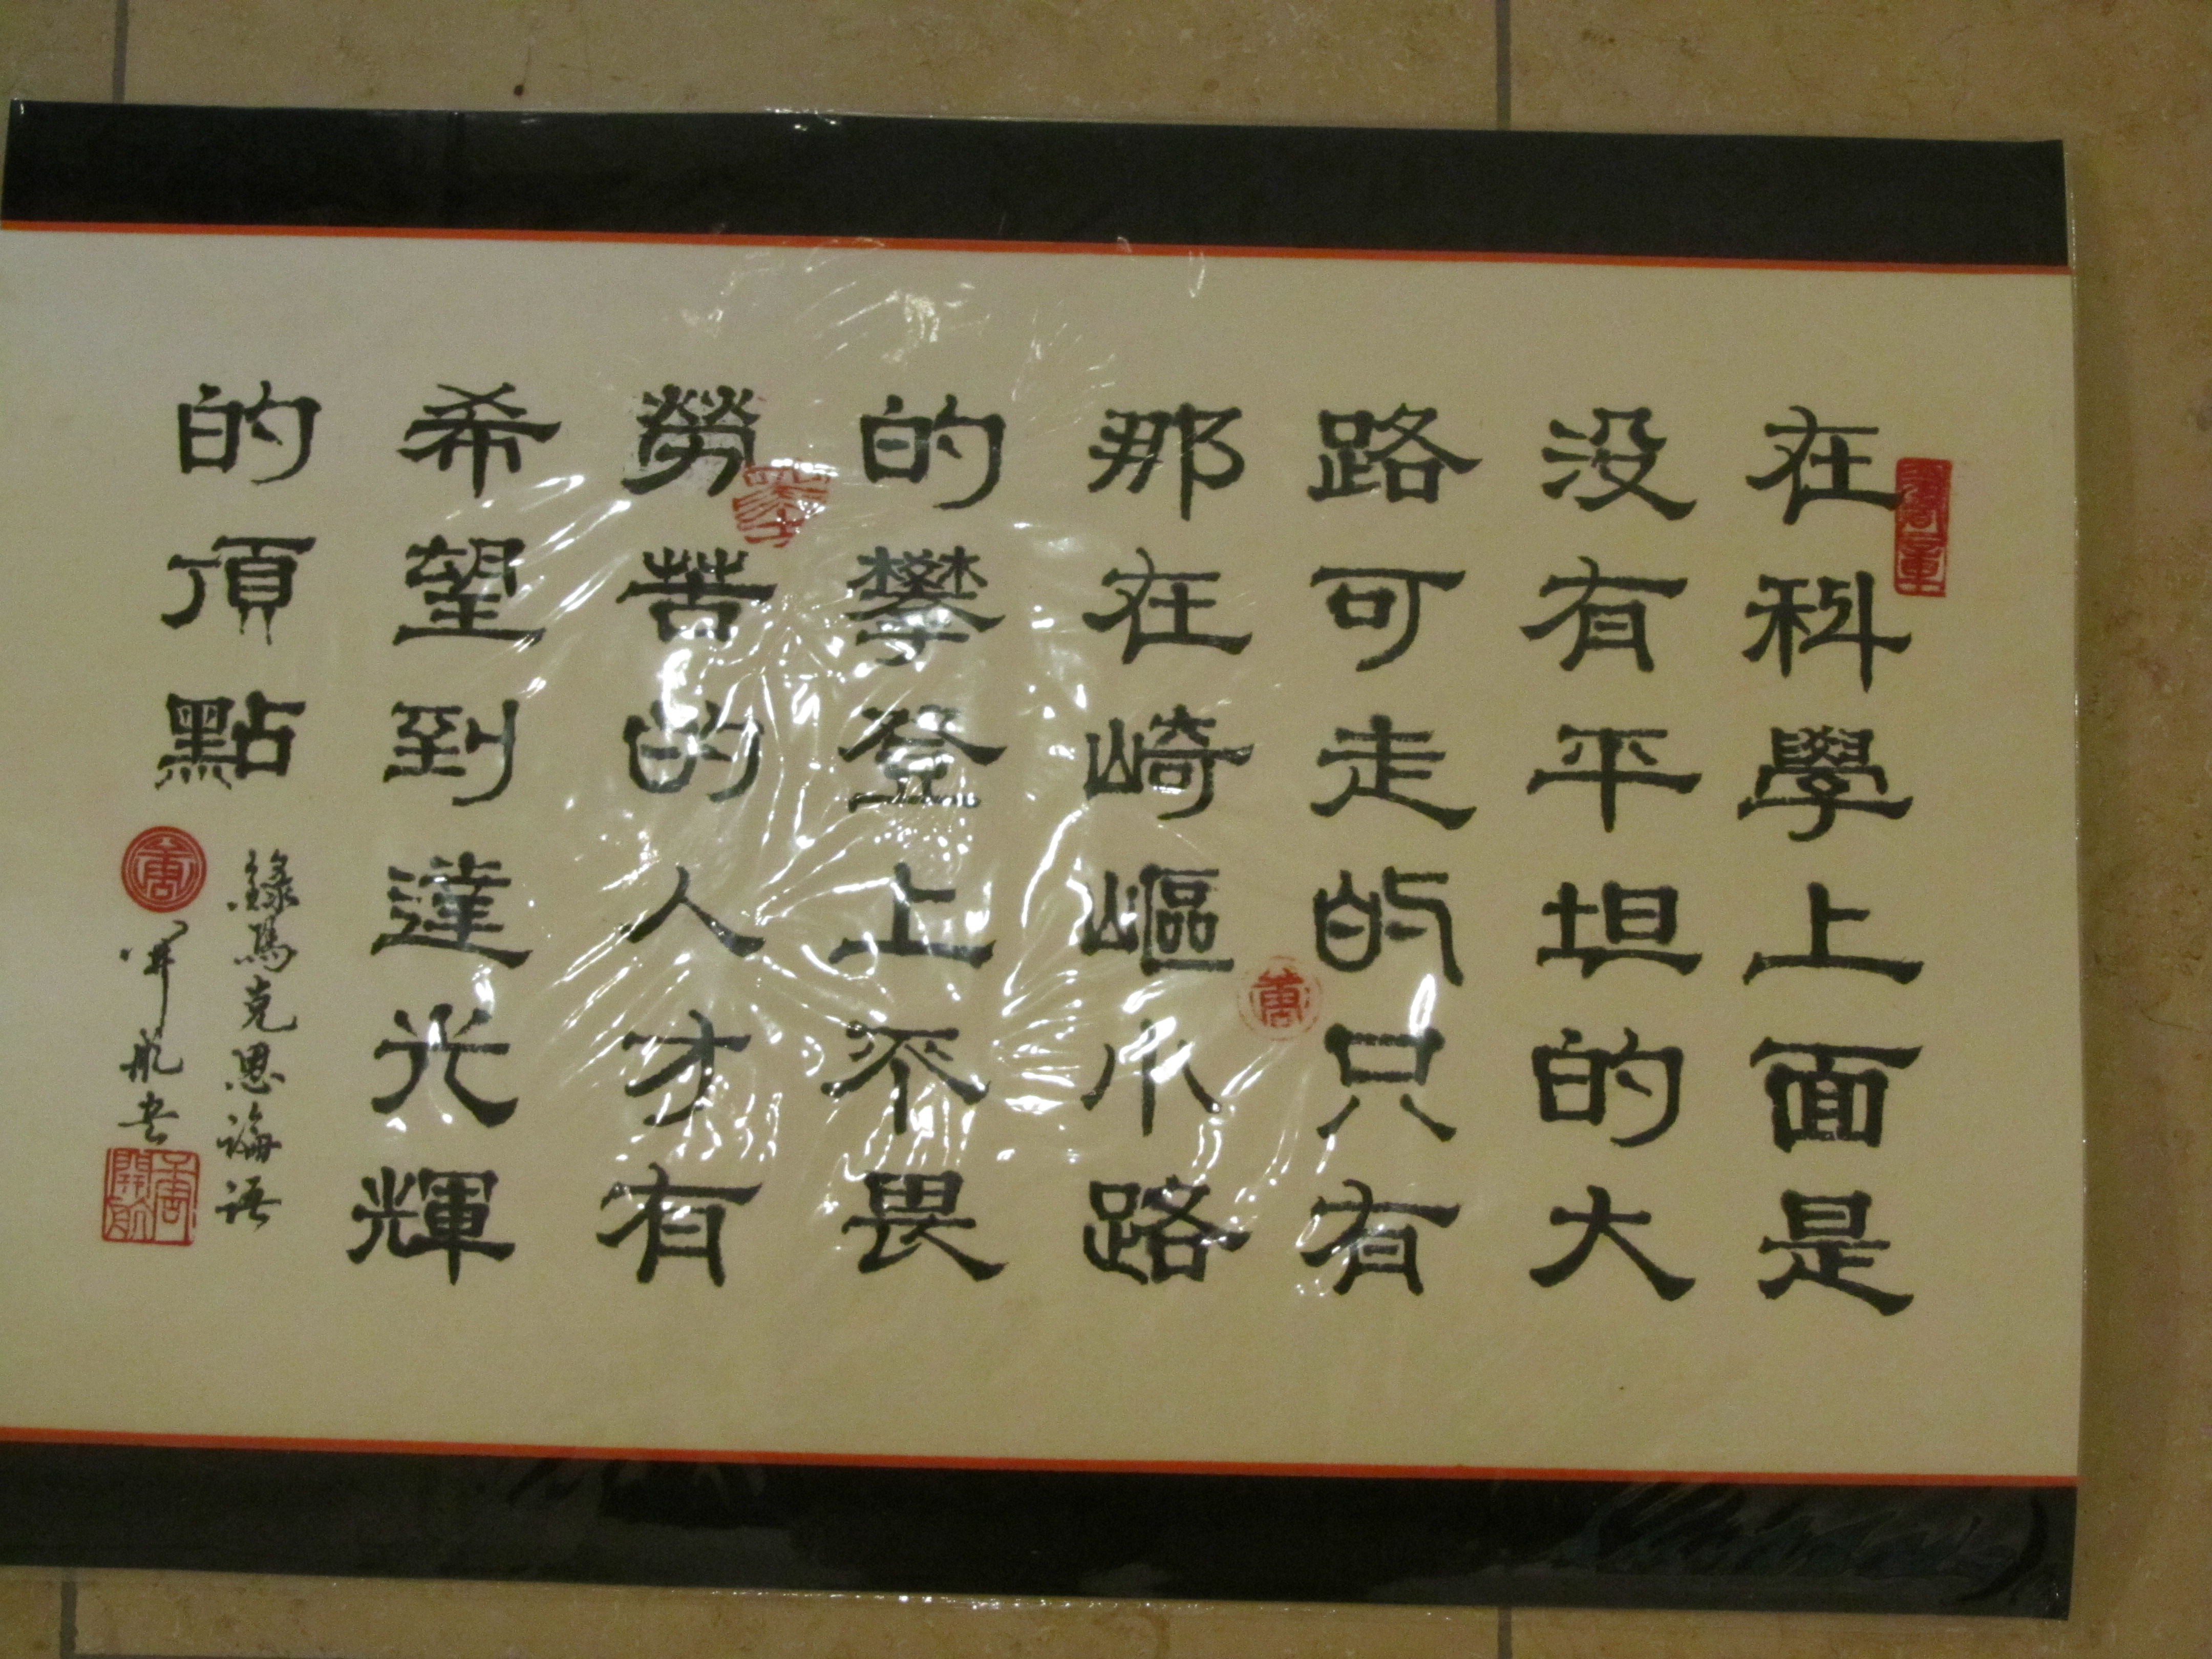 在科學上面是
没有平坦的大
路可走的只有
那在崎嶇小路
的攀登上不畏
勞苦的人才有
希望到達光輝
的頂點
錄馬克思論语